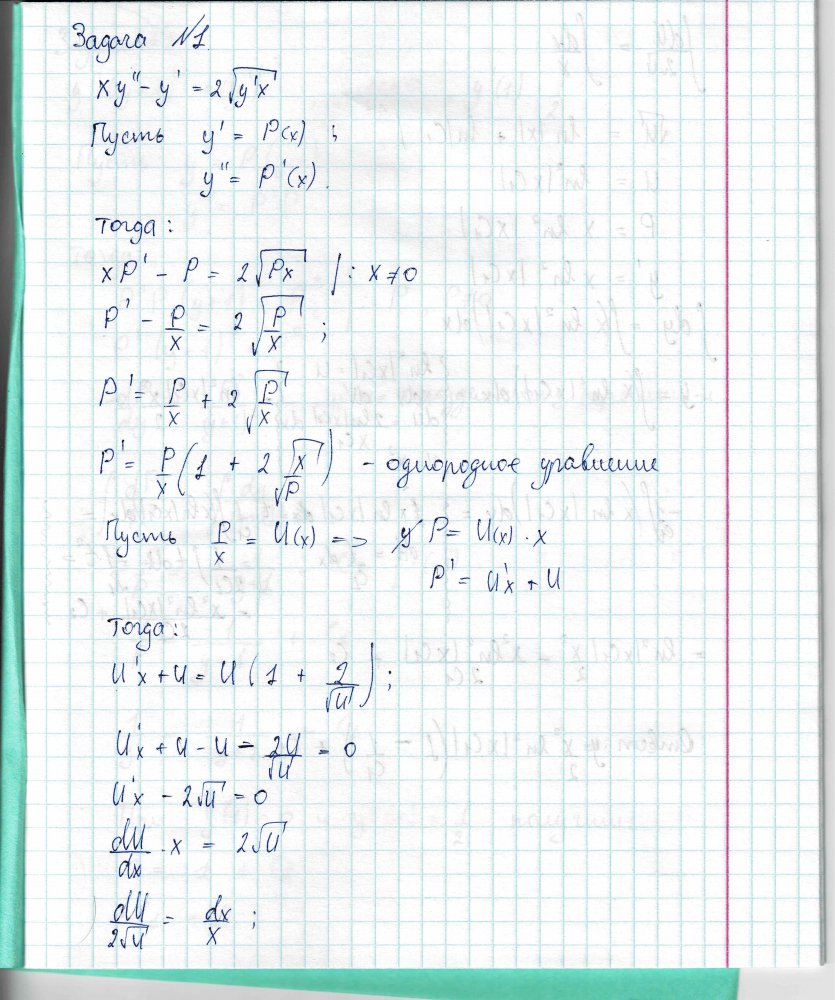 Задача №1
xy'' - y' = 2√(y'x)
Пусть y' = P(x) ;
y'' = P'(x).
Тогда:
xP' - P = 2√(Px) | : x ≠ 0
P' - P/x = 2√(P/x) ;
P' = P/x + 2√(P/x)
P' = P/x (1 + 2√x/√P) - однородное уравнение
Пусть P/x = U(x) => P = U(x) · x
P' = U'x + U
Тогда:
U'x + U = U(1 + 2/√U) ;
U'x + U - U - 2U/√U = 0
U'x - 2√U = 0
dU/dx · x = 2√U
dU/2√U = dx/x ;